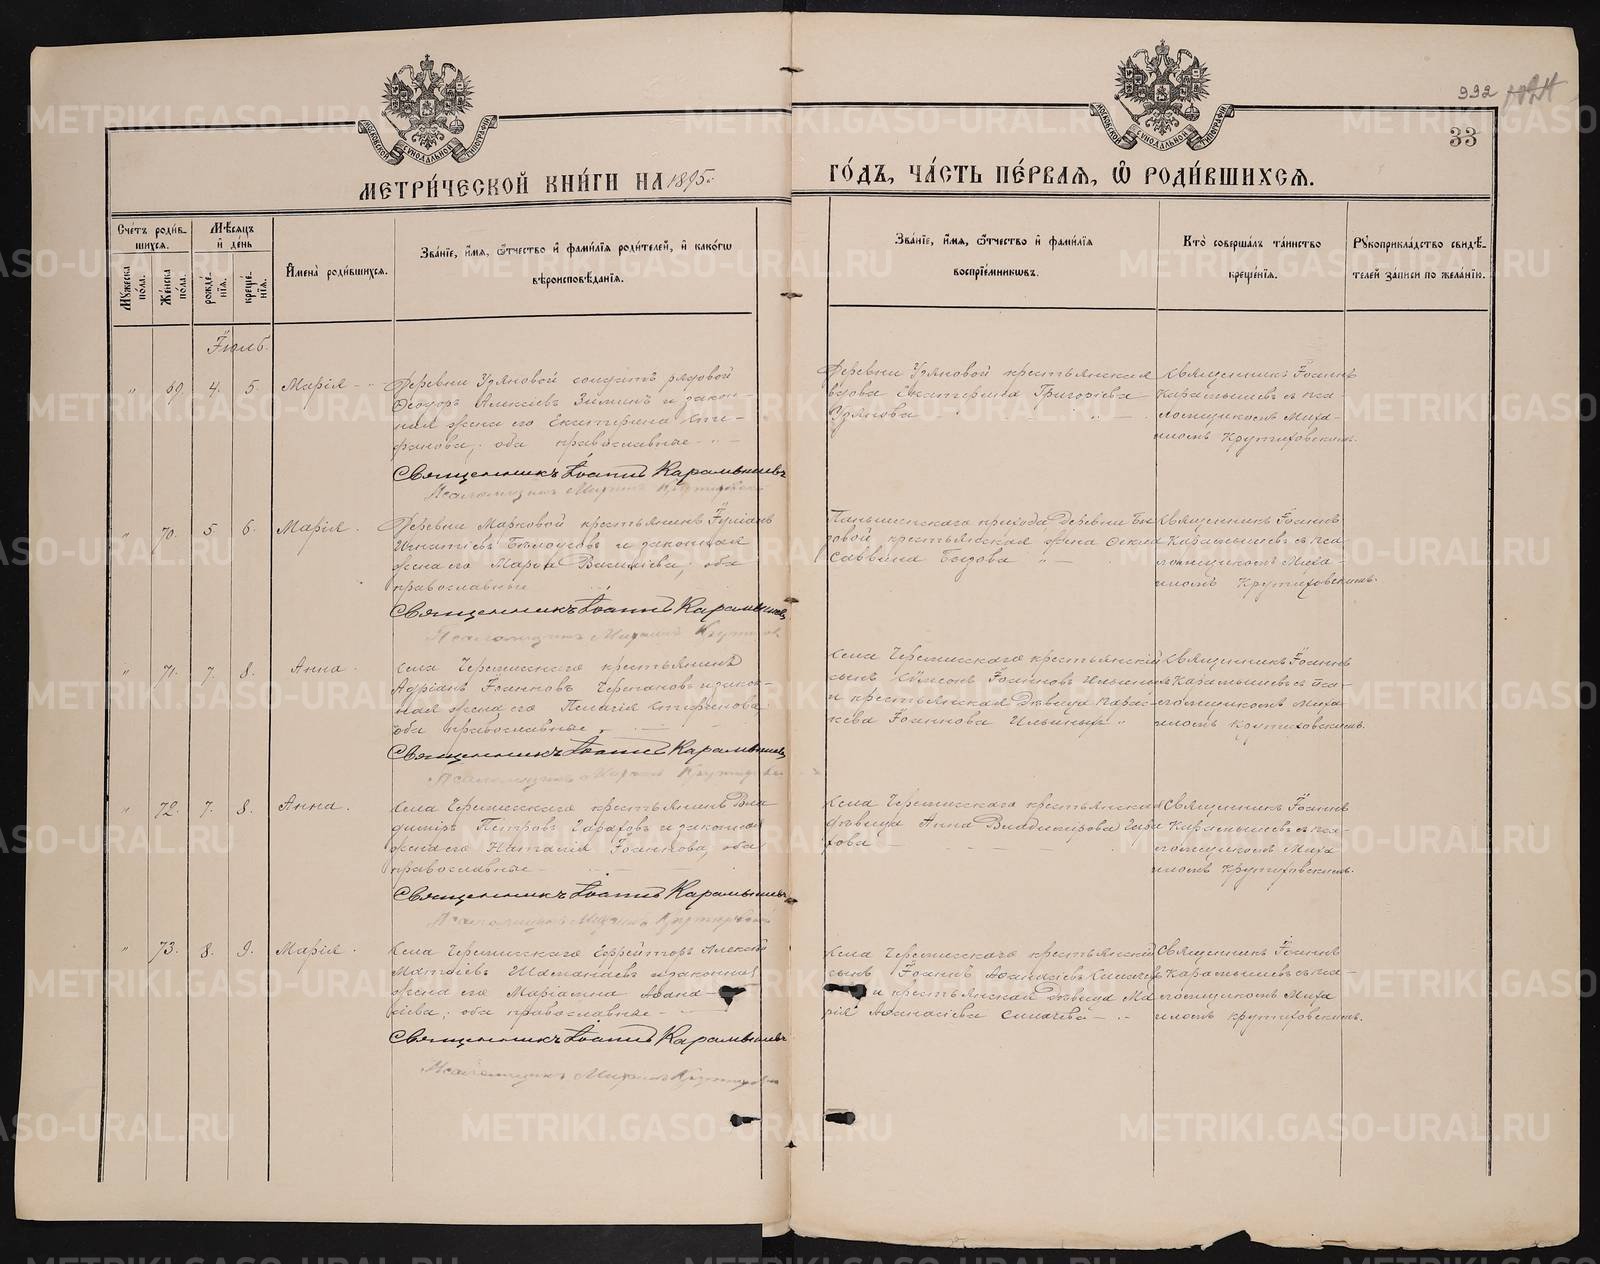 992
33
МОСКОВСКОЙ СѴНОДАЛЬНОЙ ТИПОГРАФІИ
МОСКОВСКОЙ СѴНОДАЛЬНОЙ ТИПОГРАФІИ
МЕТРИ́ЧЕСКОЙ КНИ́ГИ НА 1895
ГО́ДЪ, ЧА́СТЬ ПЕ́РВАЯ, Ѽ РОДИ́ВШИХСЯ.
Сче́тъ роди́в-
шихся.
Мѣ́сяцъ
и҆ де́нь
Му́жеска по́ла.
Же́нска по́ла.
рожде́-нїя.
креще́-нїя.
И҆мена̀ роди́вшихся.
Зва́нїе, и҆́мя, ѻ҆́тчество и҆ фами́лїя роди́телей, и҆ како́гѡ
вѣроисповѣ́данїя.
Зва́нїе, и҆́мя, ѻ҆́тчество и҆ фами́лїя
воспрїе́мникѡвъ.
Кто̀ соверша́лъ та́инство
креще́нїя.
Рꙋкоприкла́дство свидѣ́-
телей за́писи по жела́нїю.
Іюль
" 69. 4. 5. Марія
Деревни Узяновой солдатъ рядовой
Ѳеодоръ Алексіевъ Зиминъ и закон-
ная жена его Екатерина Сте-
фанова; оба православные
Священникъ Іоаннъ Карамышевъ
Псаломщикъ Михаилъ Крутиховскій
Деревни Узяновой крестьянская
вдова Екатерина Григоріева
Узянова
Священникъ Іоаннъ
Карамышевъ съ пса-
ломщикомъ Миха-
иломъ Крутиховскимъ.
" 70. 5. 6. Марія.
Деревни Марковой крестьянинъ
Игнатіевъ Бѣлоусовъ и законная
жена его Марѳа Василіева; оба
православные
Священникъ Іоаннъ Карамышевъ
Псаломщикъ Михаилъ
прихода деревни Бы-
ковой крестьянская жена
Саввина
Священникъ Іоаннъ
Карамышевъ съ пса-
ломщикомъ Миха-
иломъ Крутиховскимъ.
" 71. 7. 8. Анна.
Села Черемисскаго крестьянинъ
Адріанъ Іоанновъ Черепановъ и закон-
ная жена его Пелагія Стефанова,
оба православные
Священникъ Іоаннъ Карамышевъ
Псаломщикъ Михаилъ
Села Черемисскаго крестьянскій
сынъ Іоанновъ Ильиныхъ
и крестьянская дѣвица Парас-
кева Іоаннова Ильиныхъ
Священникъ Іоаннъ
Карамышевъ съ пса-
ломщикомъ Миха-
иломъ Крутиховскимъ.
" 72. 7. 8. Анна.
Села Черемисскаго крестьянинъ Вла-
диміръ Петровъ и законная
жена его Наталія Іоаннова, оба
православные
Священникъ Іоаннъ Карамышевъ
Псаломщикъ Михаилъ Крутиховскій
Села Черемисскаго крестьянская
дѣвица Анна Владимірова
Священникъ Іоаннъ
Карамышевъ съ пса-
ломщикомъ Миха-
иломъ Крутиховскимъ.
" 73. 8. 9. Марія.
Села Черемисскаго Ефрейторъ Алексѣй
Матѳіевъ Шаманаевъ и законная
жена его Маріамна Аѳана-
сіева; оба православные
Священникъ Іоаннъ Карамышевъ
Псаломщикъ Михаилъ Крутиховскій
Села Черемисскаго крестьянскій
сынъ Іоаннъ Аѳанасіевъ
и крестьянская дѣвица Ма-
рія Аѳанасіева
Священникъ Іоаннъ
Карамышевъ съ пса-
ломщикомъ Миха-
иломъ Крутиховскимъ.
METRIKI.GASO-URAL.RU